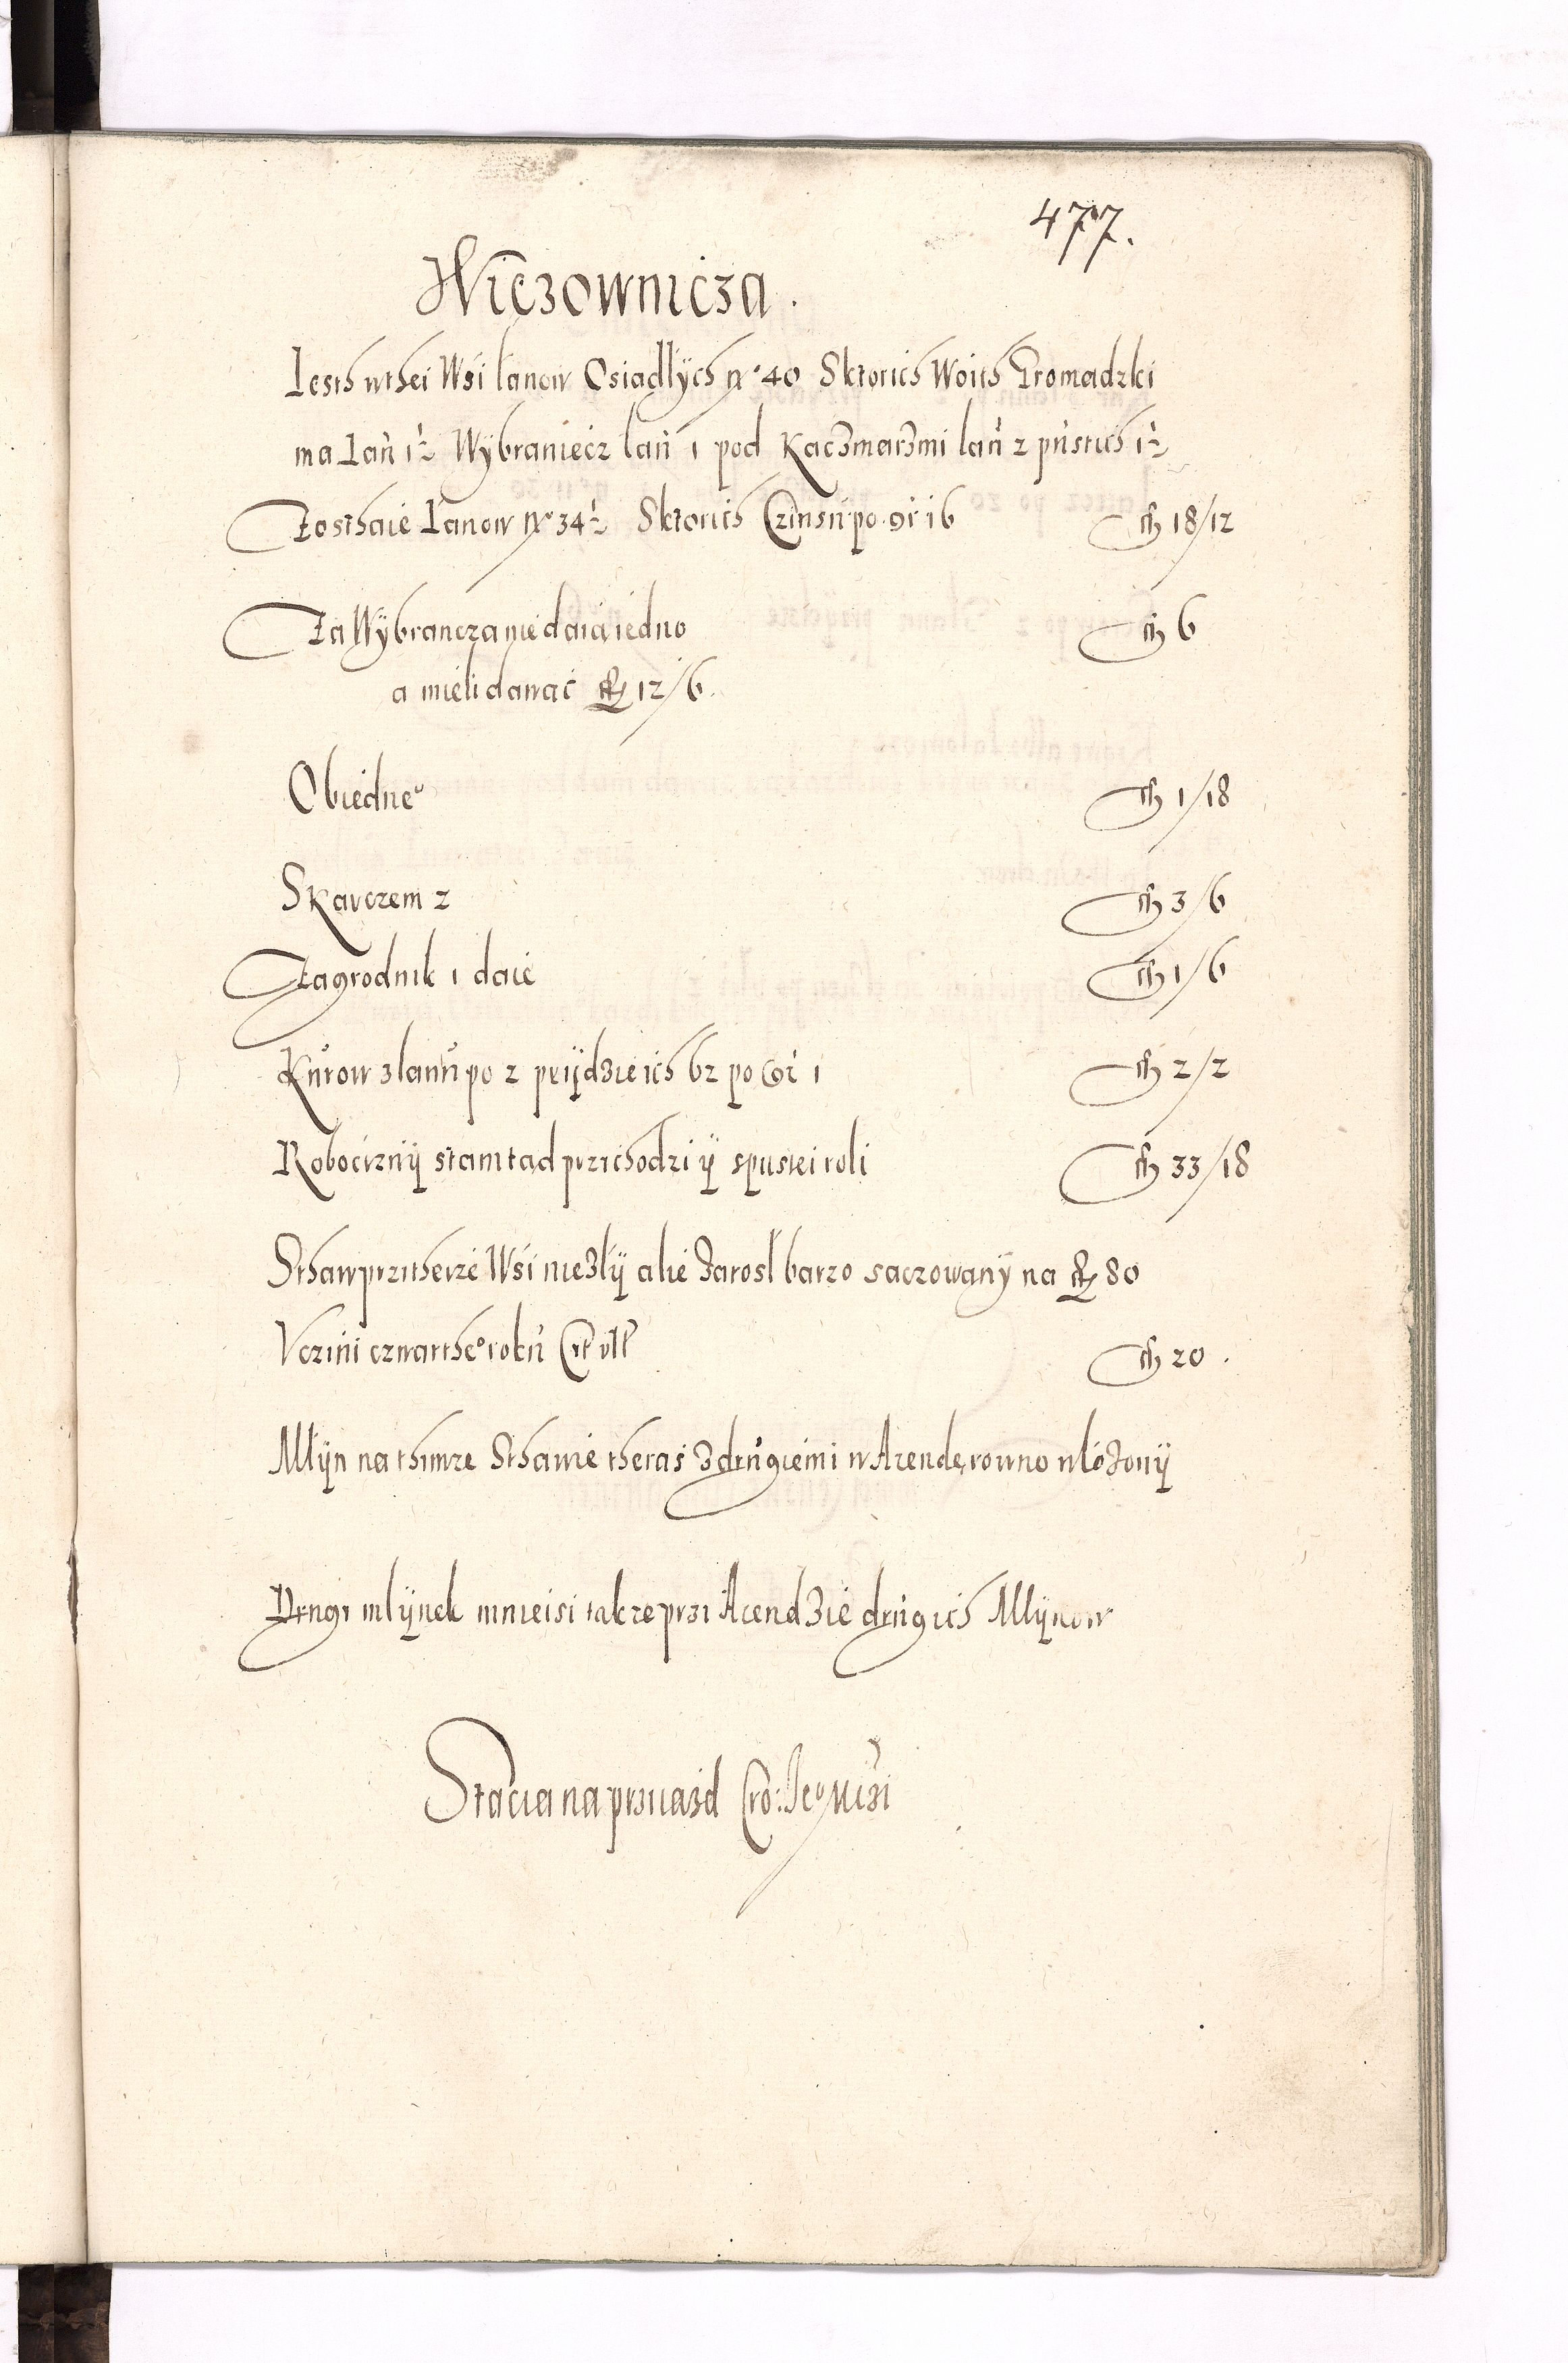 477.
Wiezownicza.
Iesth wthei Wsi lanow Osiadlÿch Nº 40 Sktorich Woith Gromadzki
ma Lan 1½ Wÿbraniecz lan 1 pod Kaczmarzmi lan 2 pustich 1½
Zosthaie Lanow Nº 34½ Sktorich Czinsu po gr 16 fl 18/12
Za Wÿbrancza nie daia iedno fl 6
a mieli dawac fl 12/6.
Obiedne° fl 1/18
Skarczem 2 fl 3/6
Zagrodnik 1 daie fl 1/6
Kurow z lanu po 2 prijdzie ich 62 po Gr 1 fl 2/2
Robociznÿ stamtad przichodzi ÿ spustei roli fl 33/18
Sthaw przitheize Wsi niezlÿ alie Zarosl barzo saczowanÿ na fl 80
Vczini czwarthe° roku fl 20.
Mlÿn na thimze Sthawie theras zdrugiemi w Arendę rowno wlozonÿ
Drugi mlÿnek mnieisi takze przi Arendzie drugich Mlÿnow
Stacia na prziiazd Cro: Je° Mczi